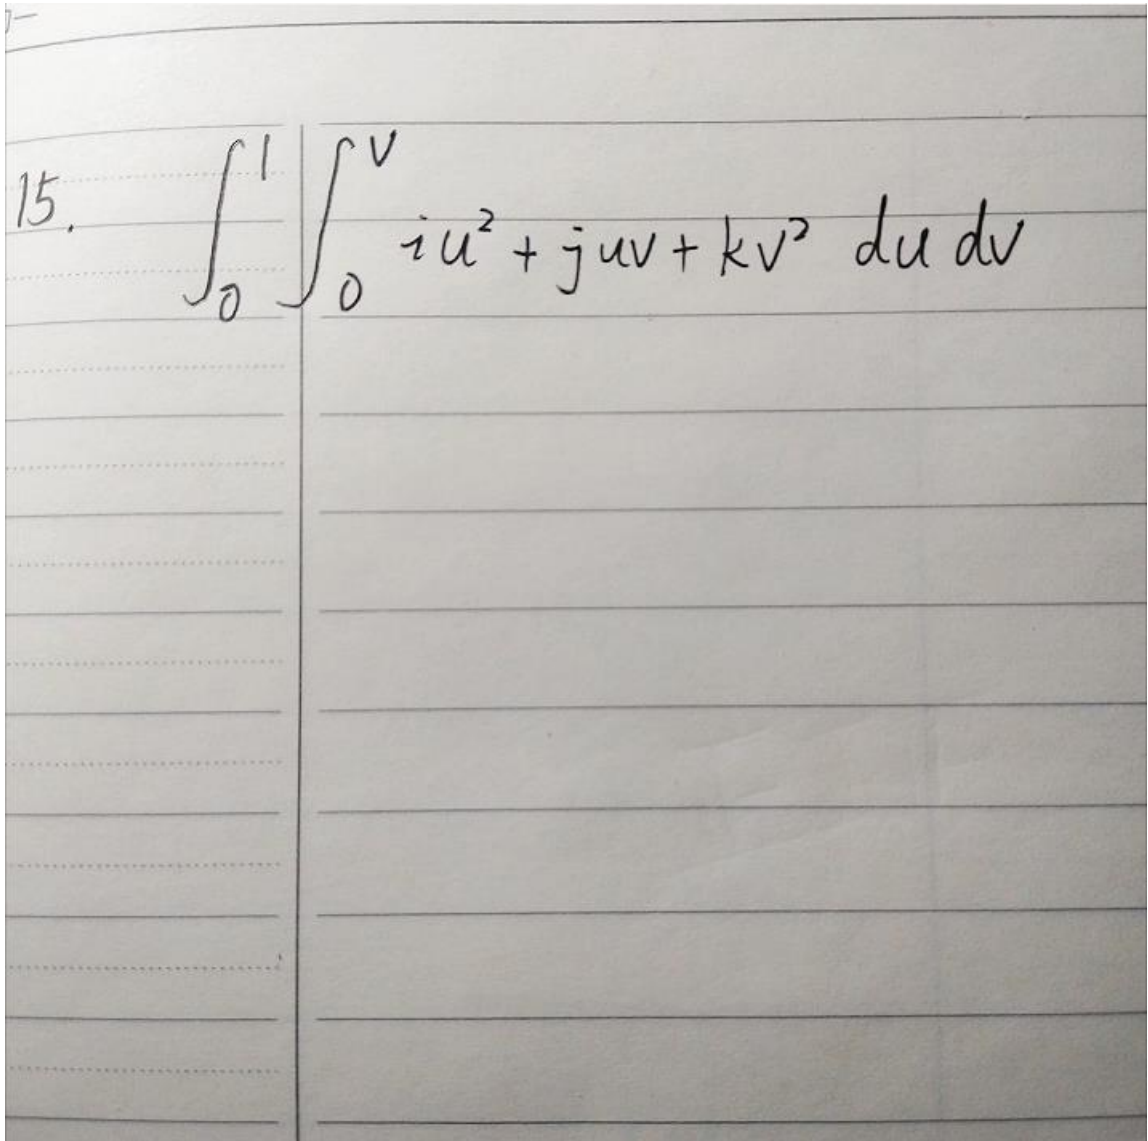 15. ∫₀¹ ∫₀ᵛ iu² + juv + kv² du dv